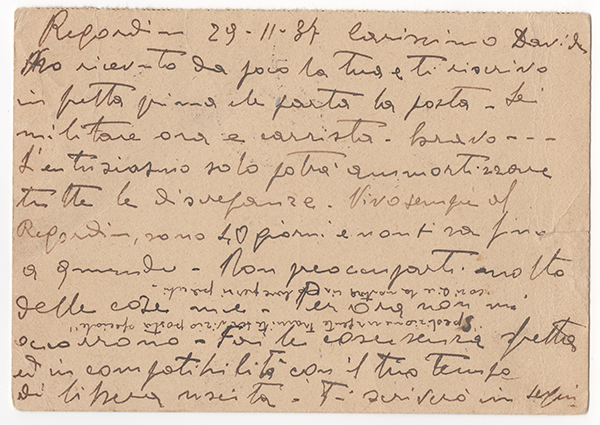 Regordin 29-11-37 Carissimo Davide
Ho ricevuto da poco la tua e ti riscrivo
in fretta prima che parta la posta - Sei
militare ora e carrista - bravo - - -
L'entusiasmo solo potrà ammortizzare
tutte le disreganze. Vivo sempre al
Regordin, sono 40 giorni e non ti sa fino
a quando - Non preoccuparti molto
delle cose mie - Per ora non mi
occorrono - Fai le cose senza fretta
ed in compatibilità con il tuo tempo
di libera uscita - Ti scriverò in
spedizione urgente tramite servizio posta speciale"